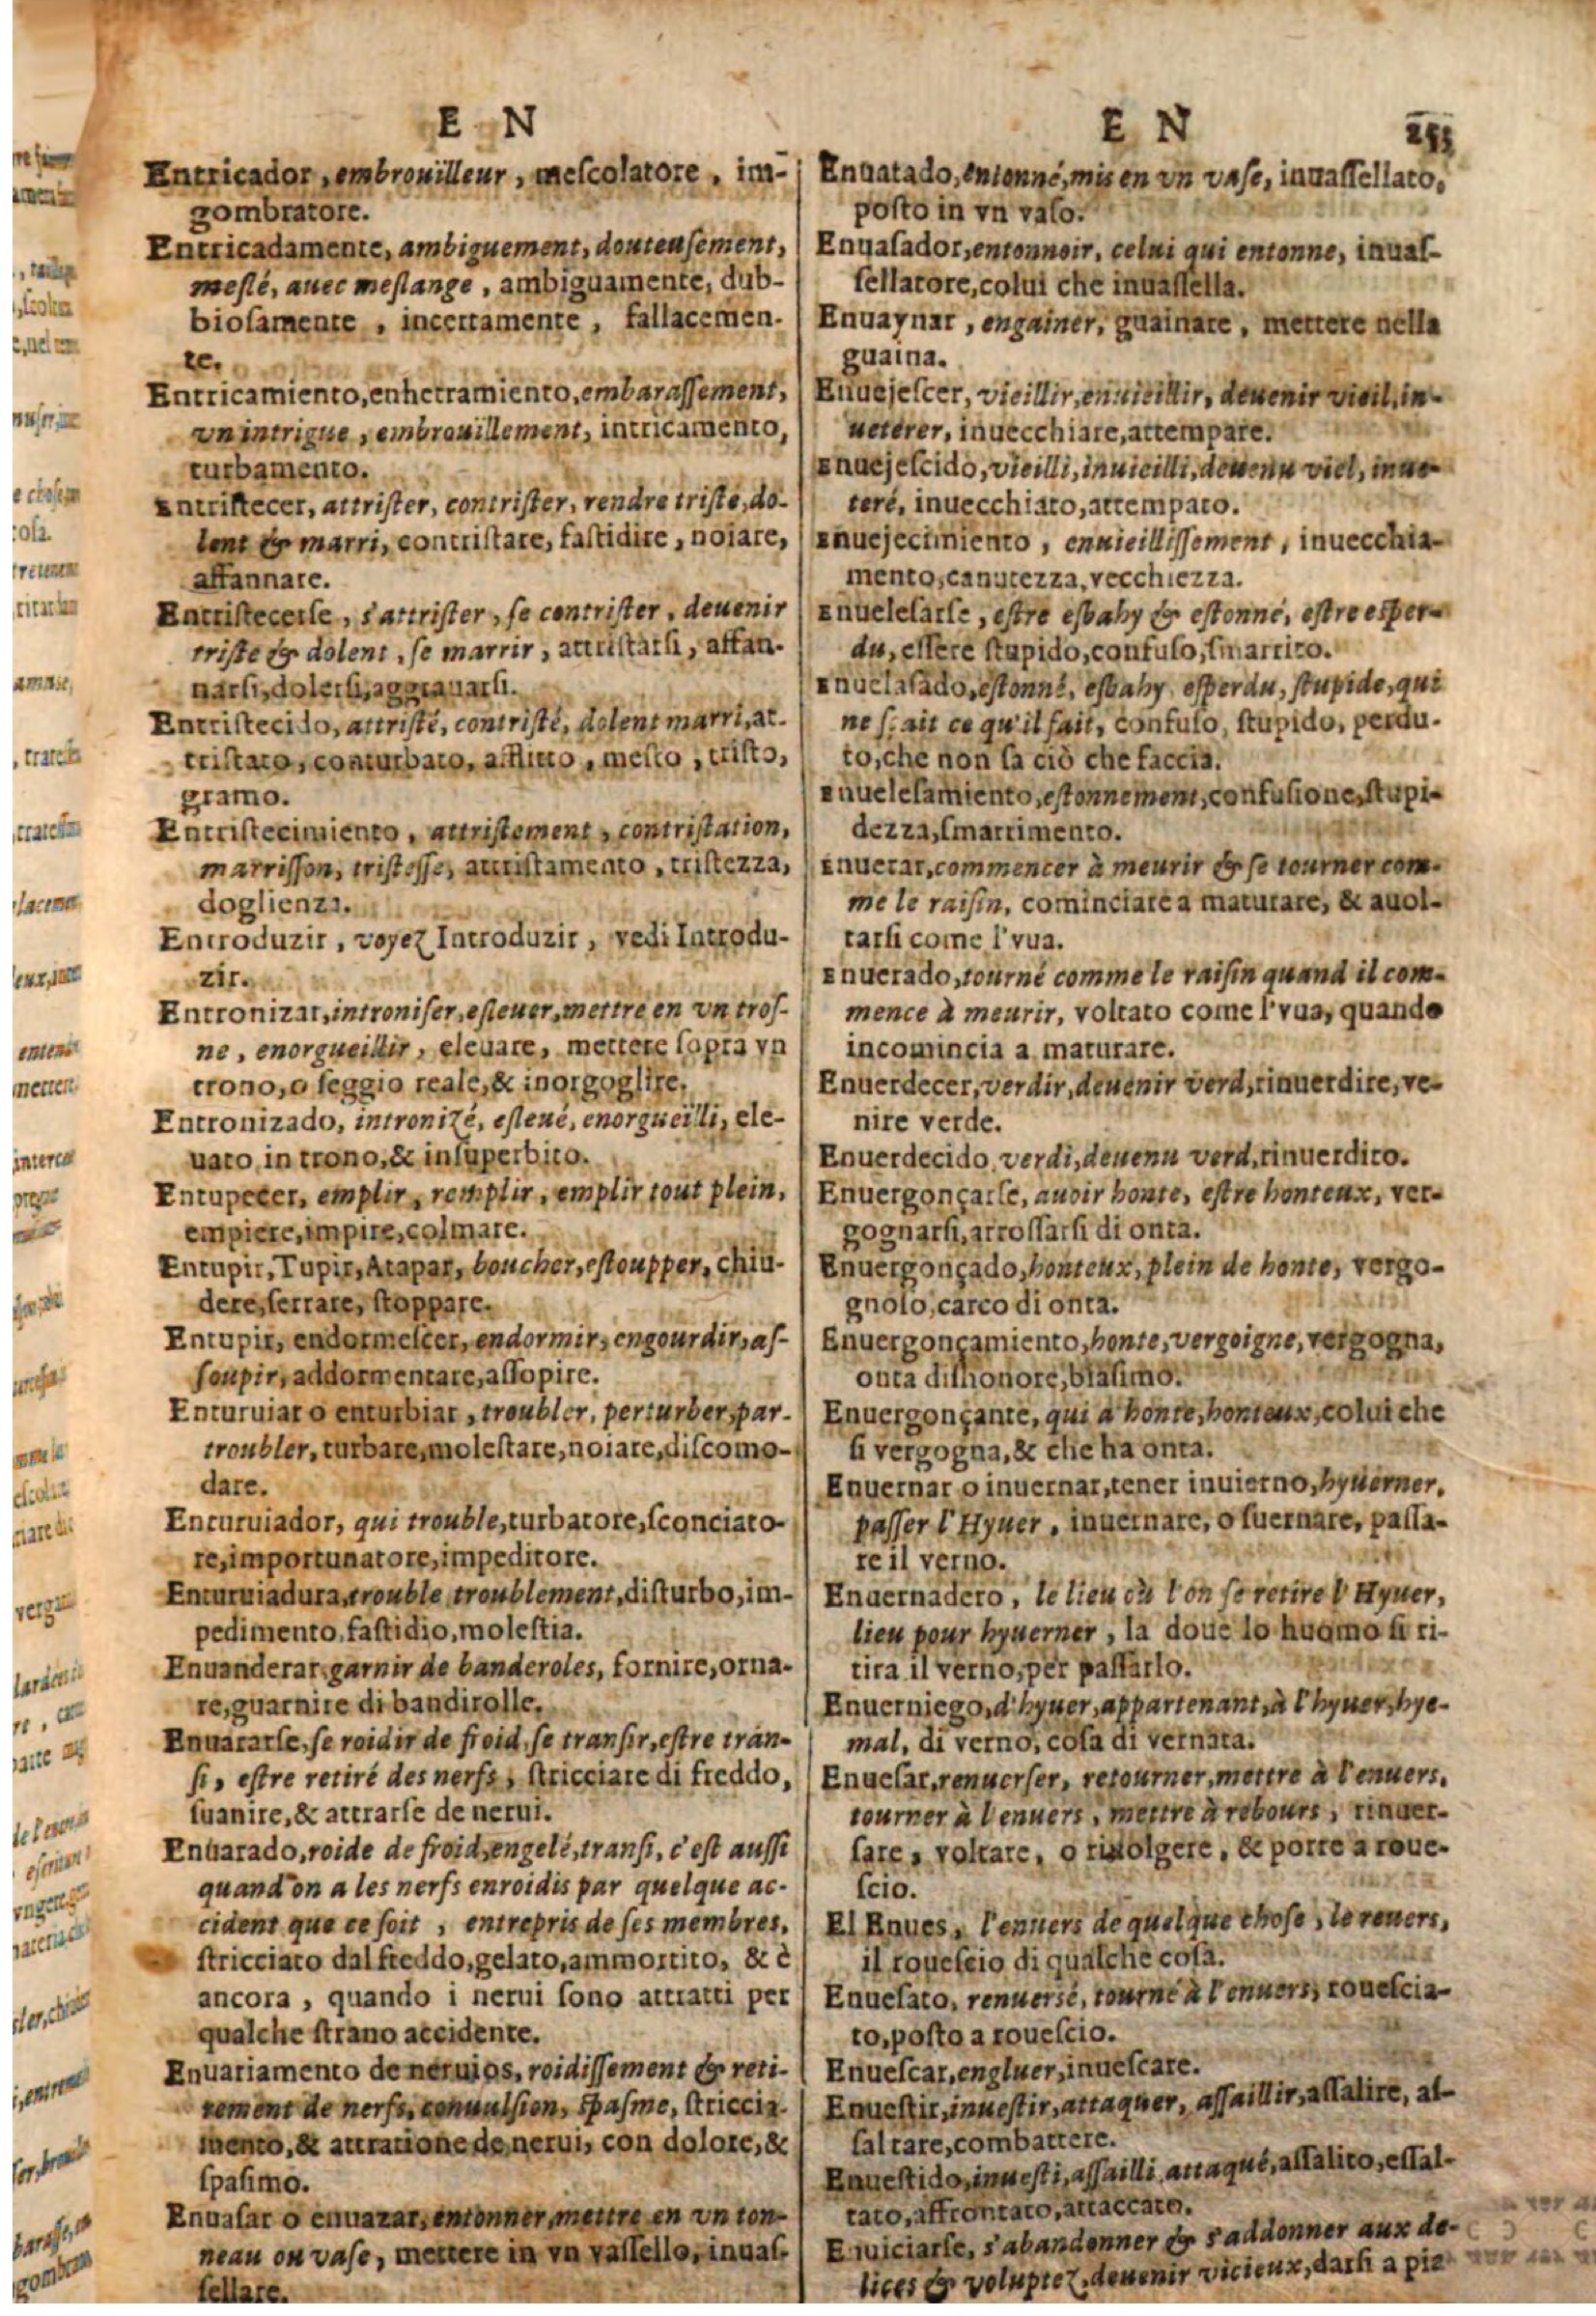 E N
Entricador, embrouilleur, meſcolatore, im-
gombratore.
Entricadamente, ambiguement, douteuſement,
meſlé, auec meſlange, ambiguamente, dub-
bioſamente, incertamente, fallacemen-
te.
Entricamiento, enhetramiento, embaraſſement,
vn intrigue, embrouillement, intricamento,
turbamento.
Entriſtecer, attriſter, contriſter, rendre triſte, do-
lent & marri, contriſtare, faſtidire, noiare,
affannare.
Entriſtecerſe, s'attriſter, ſe contriſter, deuenir
triſte & dolent, ſe marrir, attriſtarſi, affan-
narſi, dolerſi, aggrauarſi.
Entriſtecido, attriſté, contriſté, dolent marri, at-
triſtato, conturbato, afflitto, meſto, triſto,
gramo.
Entriſtecimiento, attriſtement, contriſtation,
marriſſon, triſteſſe, attriſtamento, triſtezza,
doglienza.
Entroduzir, voyez Introduzir, vedi Introdu-
zir.
Entronizar, introniſer, eſleuer, mettre en vn troſ-
ne, enorgueillir, eleuare, mettere ſopra vn
trono, o ſeggio reale, & inorgoglire.
Entronizado, intronizé, eſleué, enorgueilli, ele-
uato in trono, & inſuperbito.
Entupecer, emplir, remplir, emplir tout plein,
empiere, impire, colmare.
Entupir, Tupir, Atapar, boucher, eſtoupper, chiu-
dere, ſerrare, ſtoppare.
Entupir, endormeſcer, endormir, engourdir, aſ-
ſoupir, addormentare, aſſopire.
Enturuiar o enturbiar, troubler, perturber, par-
troubler, turbare, moleſtare, noiare, diſcomo-
dare.
Enturuiador, qui trouble, turbatore, ſconciato-
re, importunatore, impeditore.
Enturuiadura, trouble troublement, diſturbo, im-
pedimento, faſtidio, moleſtia.
Enuanderar, garnir de banderoles, fornire, orna-
re, guarnire di bandirolle.
Enuararſe, ſe roidir de froid, ſe tranſir, eſtre tran-
ſi, eſtre retiré des nerfs, ſtricciare di freddo,
ſuanire, & attrarſe de nerui.
Enuarado, roide de froid, engelé, tranſi, c'eſt auſſi
quand on a les nerfs enroidis par quelque ac-
cident que ce ſoit, entrepris de ſes membres,
ſtricciato dal freddo, gelato, ammortito, & è
ancora, quando i nerui ſono attratti per
qualche ſtrano accidente.
Enuariamento de neruios, roidiſſement & reti-
rement de nerfs, conuulſion, ſpaſme, ſtriccia-
mento, & attratione de nerui, con dolore, &
ſpaſimo.
Enuaſar o enuazar, entonner, mettre en vn ton-
neau ou vaſe, mettere in vn vaſſello, inuaſ-
ſellare.
E N 255
Enuatado, entonné, mis en vn vaſe, inuaſſellato,
poſto in vn vaſo.
Enuaſador, entonnoir, celui qui entonne, inuaſ-
ſellatore, colui che inuaſſella.
Enuaynar, engainer, guainare, mettere nella
guaina.
Enuejeſcer, vieillir, enuieillir, deuenir vieil, in-
ueterer, inuecchiare, attempare.
Enuejeſcido, vieilli, inuieilli, deuenu viel, inue-
teré, inuecchiato, attempato.
Enuejecimiento, enuieilliſſement, inuecchia-
mento, canutezza, vecchiezza.
Enueleſarſe, eſtre eſbahy & eſtonné, eſtre eſper-
du, eſſere ſtupido, confuſo, ſmarrito.
Enuelaſado, eſtonné, eſbahy, eſperdu, ſtupide, qui
ne ſçait ce qu'il fait, confuſo, ſtupido, perdu-
to, che non ſa ciò che faccia.
Enueleſamiento, eſtonnement, confuſione, ſtupi-
dezza, ſmarrimento.
Enuerar, commencer à meurir & ſe tourner com-
me le raiſin, cominciare a maturare, & auol-
tarſi come l'vua.
Enuerado, tourné comme le raiſin quand il com-
mence à meurir, voltato come l'vua, quando
incomincia a maturare.
Enuerdecer, verdir, deuenir verd, rinuerdire, ve-
nire verde.
Enuerdecido, verdi, deuenu verd, rinuerdito.
Enuergonçarſe, auoir honte, eſtre honteux, ver-
gognarſi, arroſſarſi di onta.
Enuergonçado, honteux, plein de honte, vergo-
gnoſo, carco di onta.
Enuergonçamiento, honte, vergoigne, vergogna,
onta diſhonore, biaſimo.
Enuergonçante, qui a honte, honteux, colui che
ſi vergogna, & che ha onta.
Enuernar o inuernar, tener inuierno, hyuerner,
paſſer l'Hyuer, inuernare, o ſuernare, paſſa-
re il verno.
Enuernadero, le lieu où l'on ſe retire l'Hyuer,
lieu pour hyuerner, la doue lo huomo ſi ri-
tira il verno, per paſſarlo.
Enuerniego, d'hyuer, appartenant, à l'hyuer, hye-
mal, di verno, coſa di vernata.
Enueſar, renuerſer, retourner, mettre à l'enuers,
tourner à l'enuers, mettre à rebours, rinuer-
ſare, voltare, o riuolgere, & porre a roue-
ſcio.
El Enues, l'enuers de quelque choſe, le reuers,
il roueſcio di qualche coſa.
Enueſato, renuersé, tourné à l'enuers, roueſcia-
to, poſto a roueſcio.
Enueſcar, engluer, inueſcare.
Enueſtir, inueſtir, attaquer, aſſaillir, aſſalire, aſ-
ſaltare, combattere.
Enueſtido, inueſti, aſſailli, attaqué, aſſalito, eſſal-
tato, affrontato, attaccato.
Enuiciarſe, s'abandonner & s'addonner aux de-
lices & voluptez, deuenir vicieux, darſi a pia